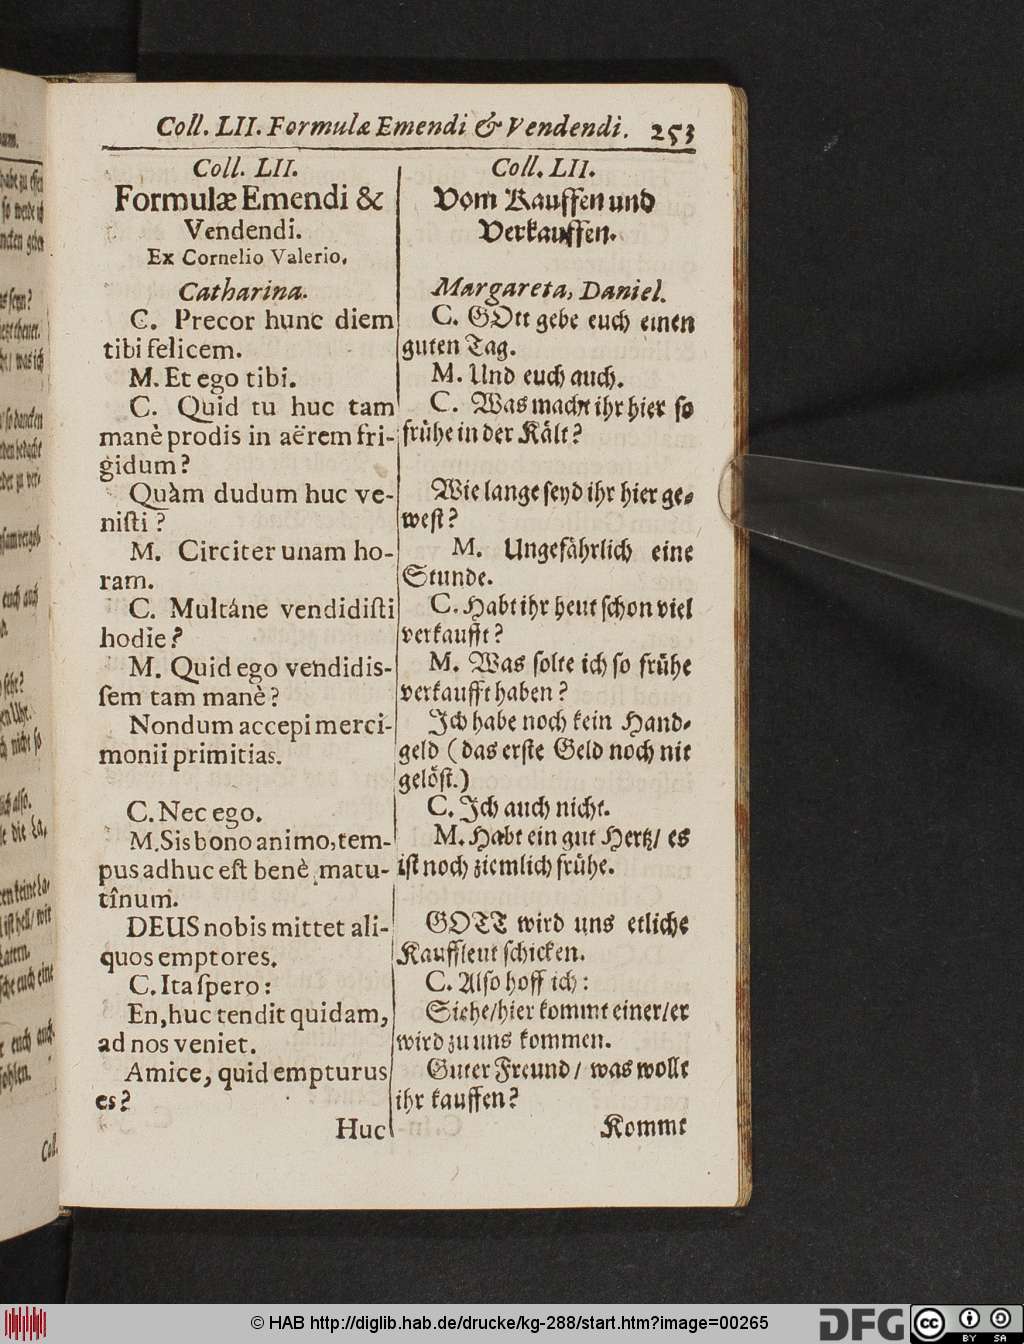 Coll. LII. Formulæ Emendi & Vendendi. 253
Coll. LII.
Formulæ Emendi &
Vendendi.
Ex Cornelio Valerio.
Catharina.
C. Precor hunc diem
tibi felicem.
M. Et ego tibi.
C. Quid tu huc tam
manè prodis in aërem fri-
gidum?
Quàm dudum huc ve-
nisti?
M. Circiter unam ho-
ram.
C. Multáne vendidisti
hodie?
M. Quid ego vendidis-
sem tam manè?
Nondum accepi merci-
monii primitias.
C. Nec ego.
M. Sis bono animo, tem-
pus adhuc est benè matu-
tînum.
DEUS nobis mittet ali-
quos emptores.
C. Ita spero:
En, huc tendit quidam,
ad nos veniet.
Amice, quid empturus
es?
Huc
Coll. LII.
Vom Kauffen und
Verkauffen.
Margareta, Daniel.
C. GOtt gebe euch einen
guten Tag.
M. Und euch auch.
C. Was macht ihr hier so
frühe in der Kält?
Wie lange seyd ihr hier ge-
west?
M. Ungefährlich eine
Stunde.
C. Habt ihr heut schon viel
verkaufft?
M. Was solte ich so frühe
verkaufft haben?
Ich habe noch kein Hand-
geld (das erste Geld noch nit
gelöst.)
C. Ich auch nicht.
M. Habt ein gut Hertz/ es
ist noch ziemlich frühe.
GOTT wird uns etliche
Kauffleut schicken.
C. Also hoff ich:
Siehe/hier kommt einer/er
wird zu uns kommen.
Guter Freund/ was wollt
ihr kauffen?
Kommt
© HAB http://diglib.hab.de/drucke/kg-288/start.htm?image=00265
DFG
cc
BY SA